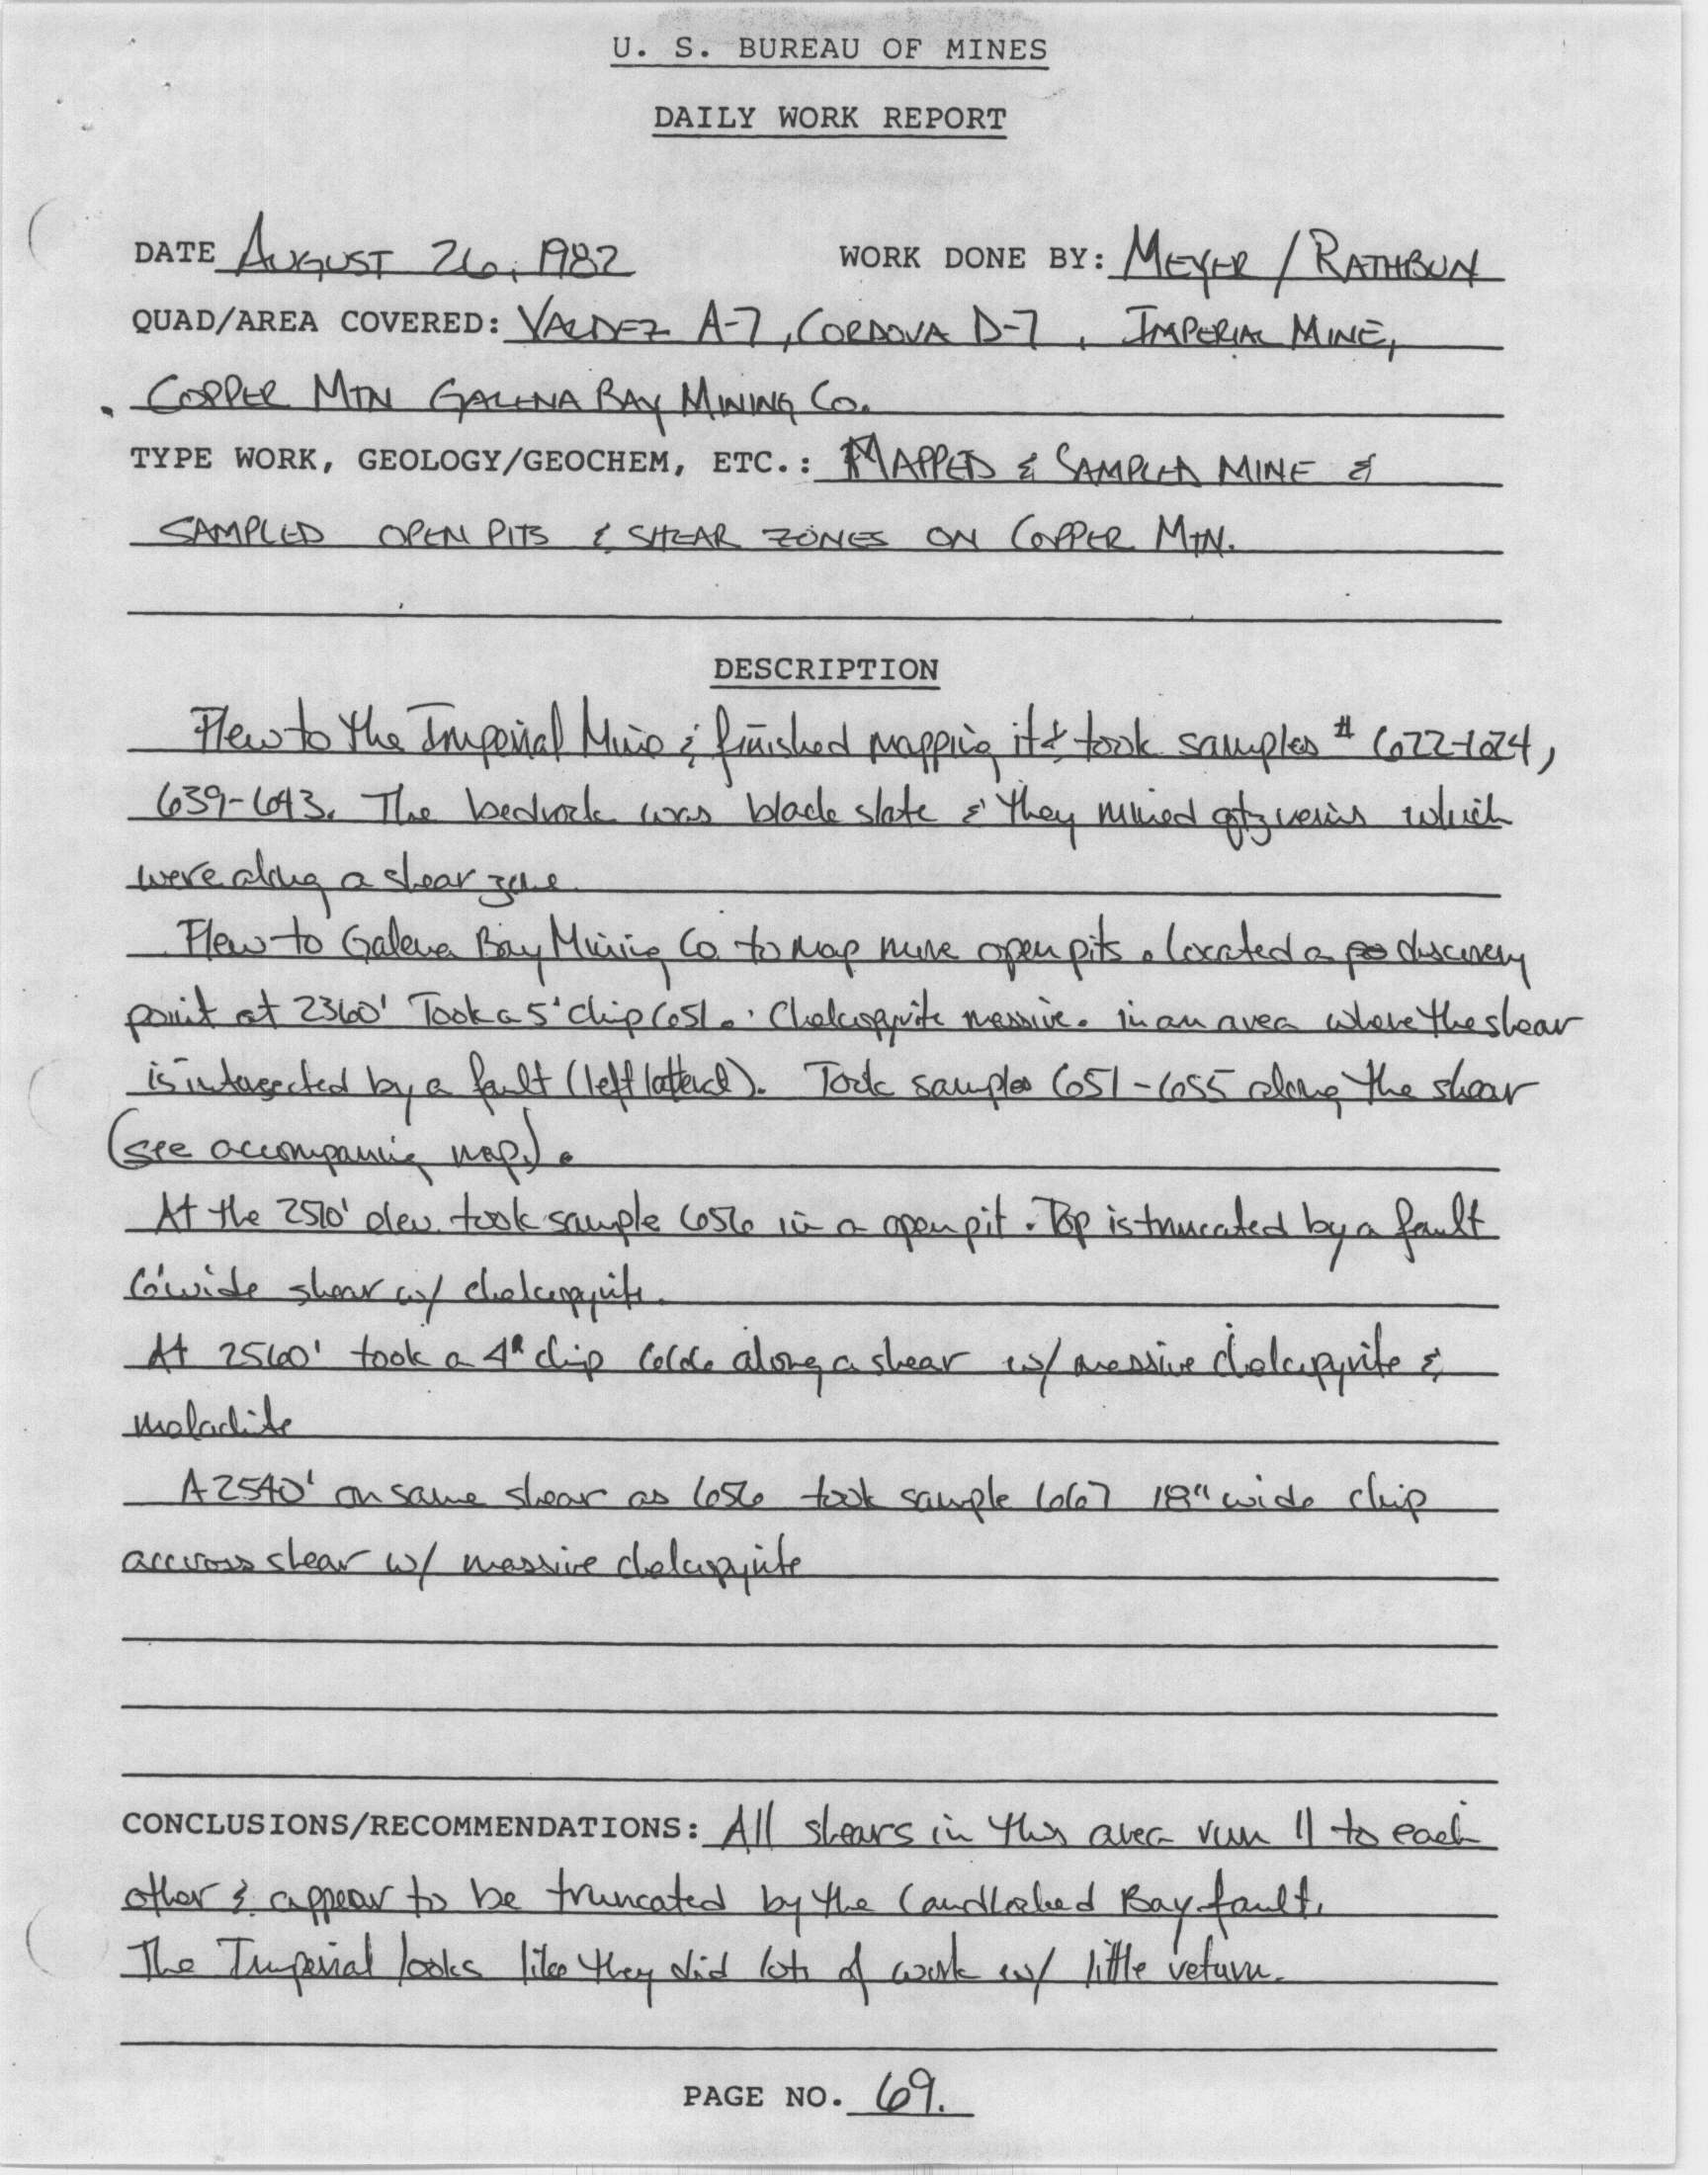 U. S. BUREAU OF MINES
DAILY WORK REPORT
DATE AUGUST 26, 1982 WORK DONE BY: MEYER / RATHBUN
QUAD/AREA COVERED: VALDEZ A-7, CORDOVA D-7, IMPERIAL MINE,
COPPER MTN GALENA BAY MINING CO.
TYPE WORK, GEOLOGY/GEOCHEM, ETC.: MAPPED & SAMPLED MINE &
SAMPLED OPEN PITS & SHEAR ZONES ON COPPER MTN.
DESCRIPTION
Flew to the Imperial Mine & finished mapping it & took samples # 622-624,
639-643. The bedrock was black slate & they mined qtz veins which
were along a shear zone.
Flew to Galena Bay Mining Co. to map more open pits. Located a discovery
point at 2360' Took a 5' chip 651. Chalcopyrite massive. in an area where the shear
is intersected by a fault (left latteral). Took samples 651-655 along the shear
(see accompaning map).
At the 2510' elev. took sample 656 in a open pit. Top is truncated by a fault
6' wide shear w/ chalcopyrite.
At 2560' took a chip 666 along a shear w/ massive chalcopyrite &
malachite
A 2540' on same shear as 656 took sample 667 18" wide chip
accross shear w/ massive chalcopyrite
CONCLUSIONS/RECOMMENDATIONS: All shears in this area run || to each
other & appear to be truncated by the Landlocked Bay fault.
The Imperial looks like they did lots of work w/ little return.
PAGE NO. 69.